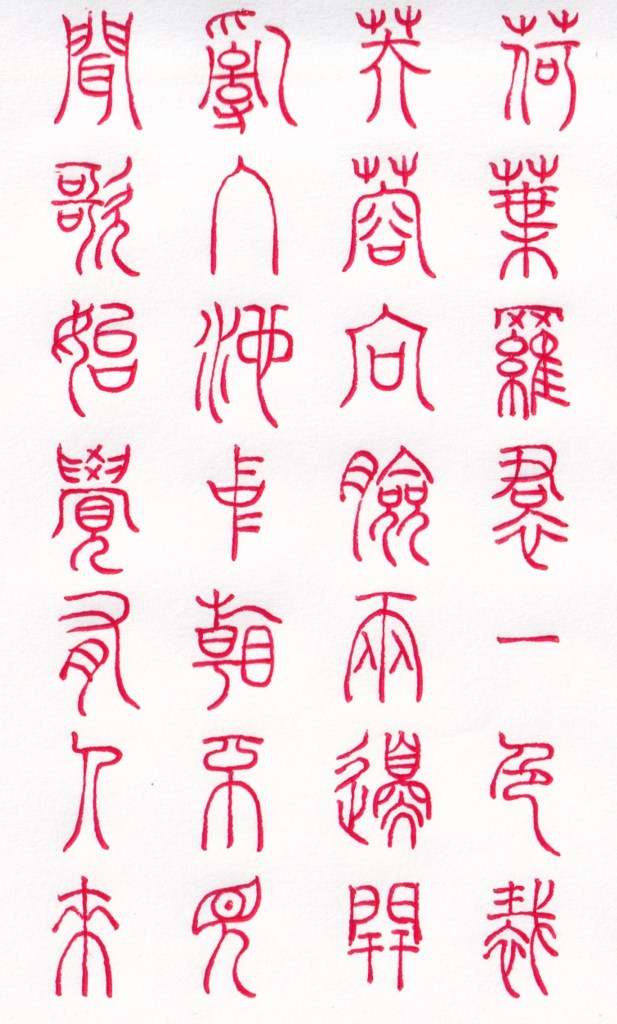 荷葉羅裙一色裁
芙蓉向臉兩邊開
亂入池中看不見
聞歌始覺有人來